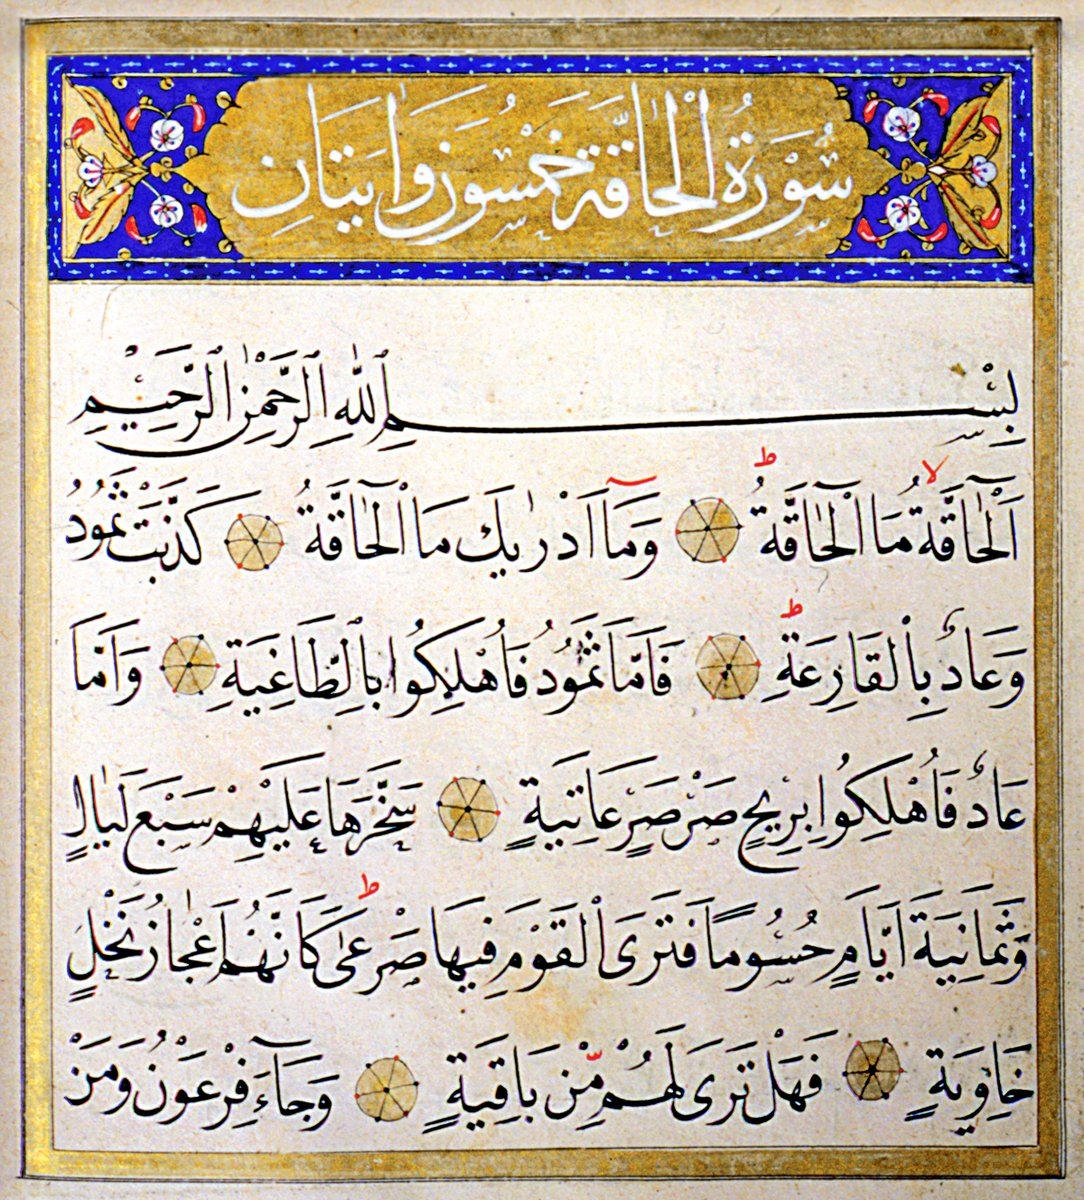 سُورَةُ الْحَاقَّةِ خَمْسُونَ وَاٰيَتَانِ
بِسْمِ ٱللّٰهِ ٱلرَّحْمٰنِ ٱلرَّحِيمِ
اَلْحَاقَّةُ لا مَا الْحَاقَّةُ ط وَمَٓا اَدْرٰيكَ مَا الْحَاقَّةُ كَذَّبَتْ ثَمُودُ
وَعَادٌ بِالْقَارِعَةِ ط فَاَمَّا ثَمُودُ فَاُهْلِكُوا بِالطَّاغِيَةِ وَاَمَّا
عَادٌ فَاُهْلِكُوا بِرِيحٍ صَرْصَرٍ عَاتِيَةٍ سَخَّرَهَا عَلَيْهِمْ سَبْعَ لَيَالٍ
وَثَمَانِيَةَ اَيَّامٍ حُسُومًا فَتَرَى الْقَوْمَ فِيهَا صَرْعٰى ط كَاَنَّهُمْ اَعْجَازُ نَخْلٍ
خَاوِيَةٍ فَهَلْ تَرَى لَهُمْ مِّنْ بَاقِيَةٍ وَجَٓاءَ فِرْعَوْنُ وَمَنْ